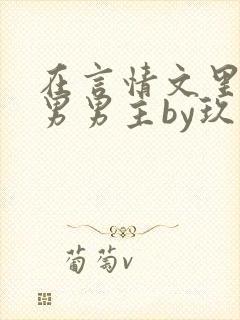 在言情文里
男男主by玖
葡萄v